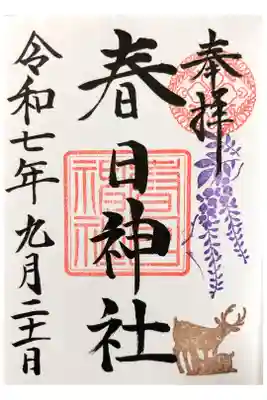 奉拝
春日神社
春日
神社
令和七年九月二十一日